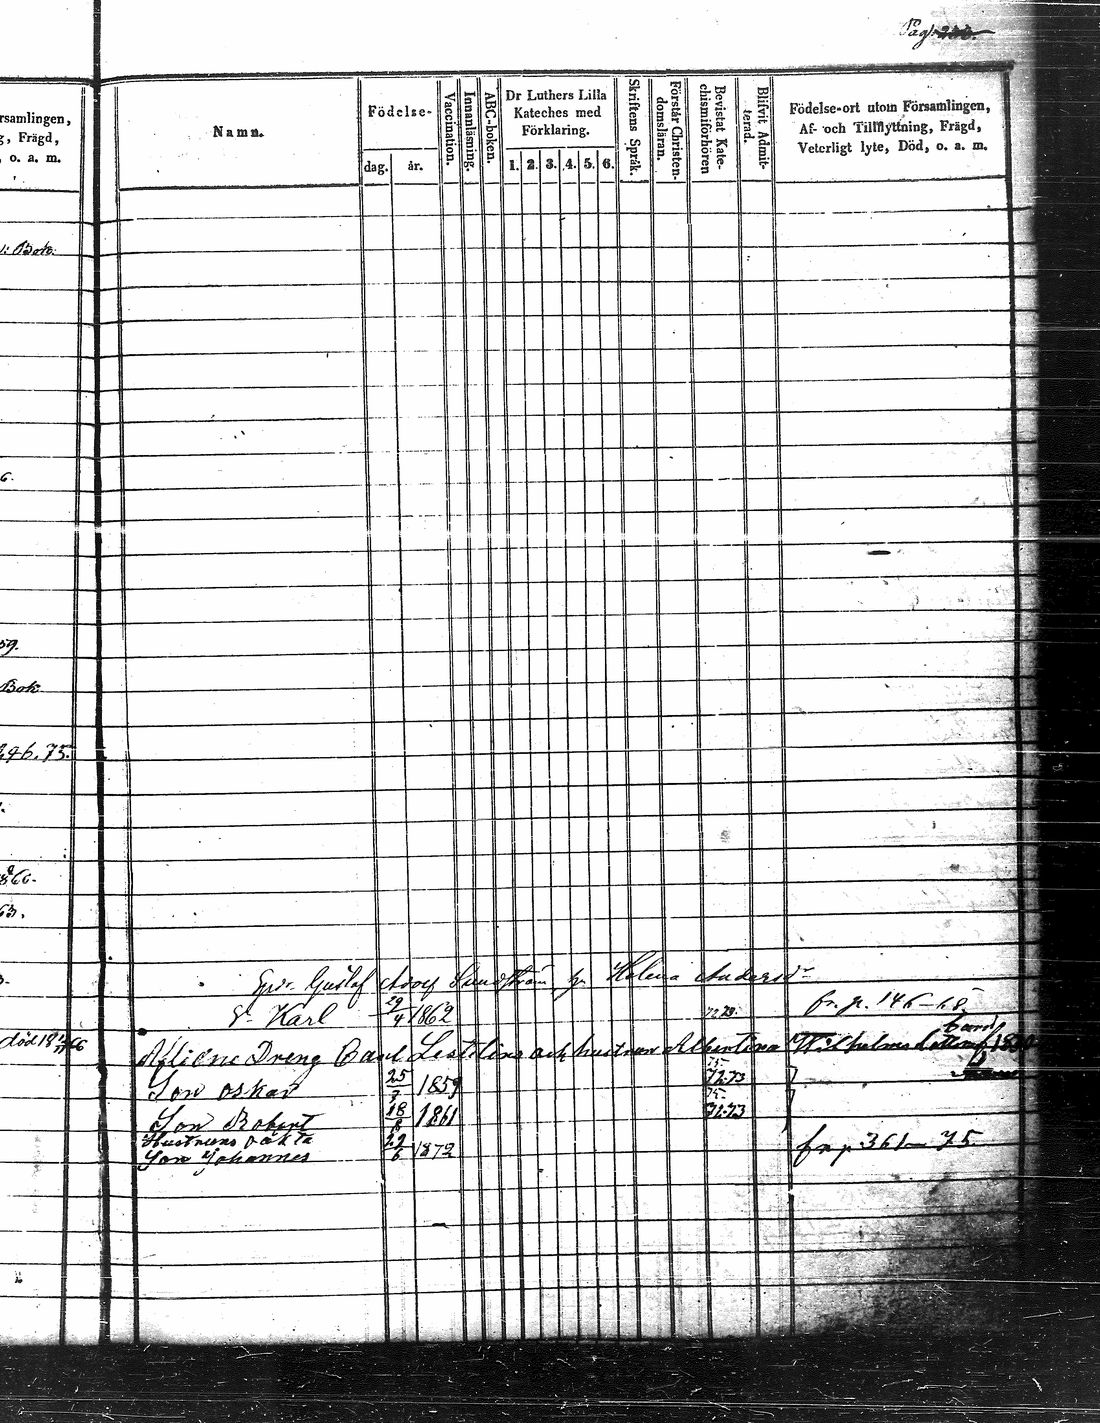 Pag. 233.
rsamlingen,
g, Frägd,
, o. a. m.
Namn.
Födelse-
dag.
år.
Vaccination.
Innanläsning.
ABC-boken.
Dr Luthers Lilla
Kateches med
Förklaring.
1. 2. 3. 4. 5. 6.
Skriftens Språk.
Förstår Christen-
domsläran.
Bevistat Kate-
chismiförhören
Blifvit Admit-
terad.
Födelse-ort utom Församlingen,
Af- och Tillflyttning, Frägd,
Veterligt lyte, Död, o. a. m.
Bok.
6.
59.
Bok
246. 75.
1866.
63.
Gustaf Adolf Sundström Helena Andersdr
Karl 29/4 1862 72.73. fr. p. 146-68
död 18 66
Aflidne Dreng Carl Lestelius och hustrun Albertina Wilhelms
Son Oskar 25 1859 75. 72.73
Son Robert 18/8 1861 75. 72.73
Hustruns oäkta
Son Johannes 22/6 1872 fr p 361-75